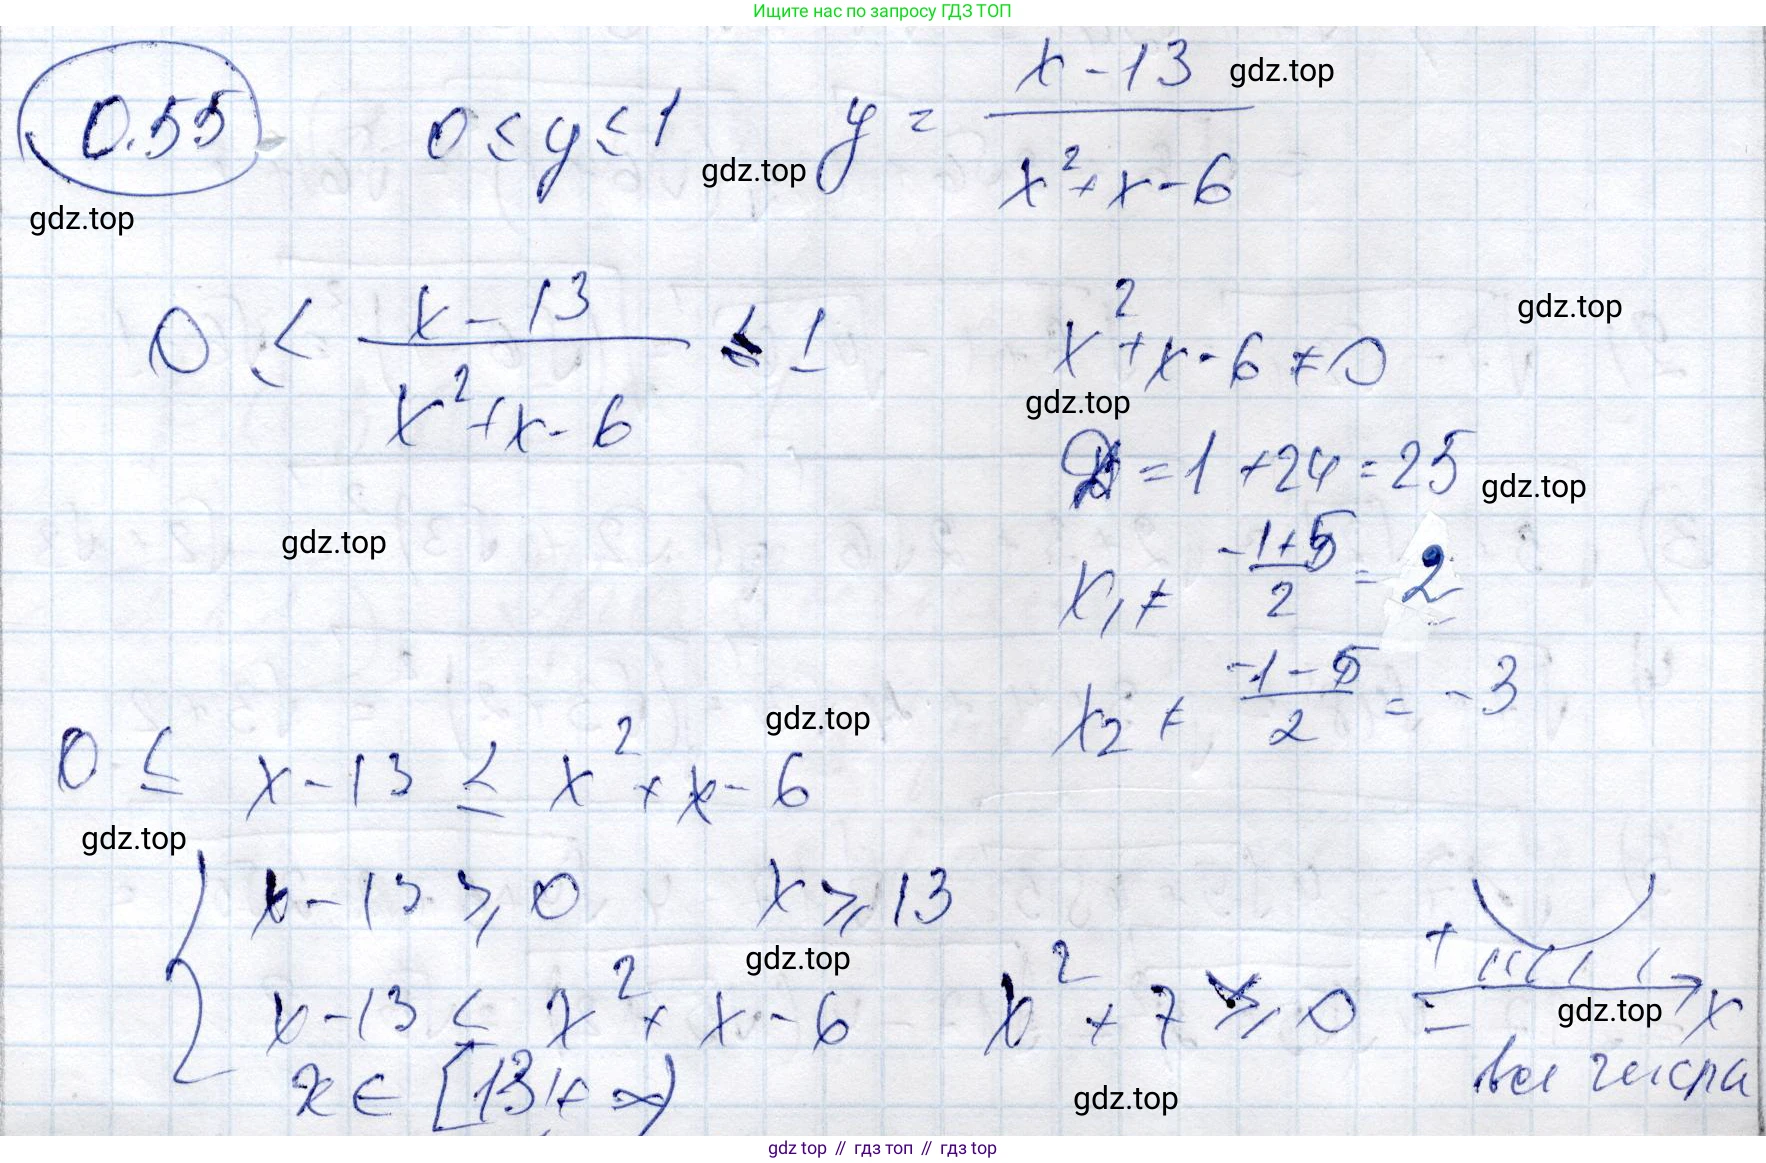 Ищите нас по запросу ГДЗ ТОП
0.55 0 ≤ y ≤ 1 y = (x - 13)/(x² + x - 6)
gdz.top
gdz.top
gdz.top
0 ≤ (x - 13)/(x² + x - 6) ≤ 1 x² + x - 6 ≠ 0
gdz.top
gdz.top
D = 1 + 24 = 25
gdz.top
gdz.top
x₁ ≠ (-1+5)/2 = 2
x₂ ≠ (-1-5)/2 = -3
gdz.top
0 ≤ x - 13 ≤ x² + x - 6
gdz.top
{ x - 13 ≥ 0 x ≥ 13
gdz.top
x - 13 ≤ x² + x - 6 x² + 7 ≥ 0 + - x
gdz.top
все числа
x ∈ [13; +∞)
gdz.top
gdz top // гдз топ // гдз top